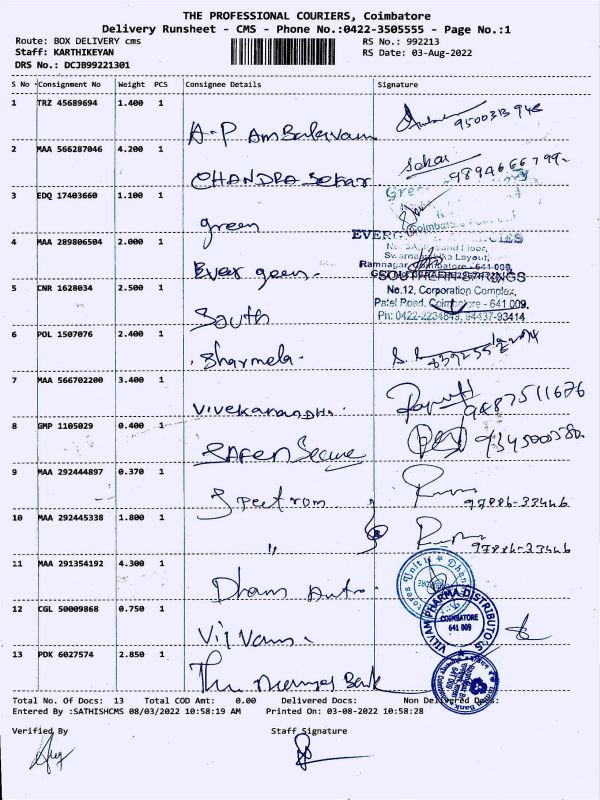 THE PROFESSIONAL COURIERS, Coimbatore
Delivery Runsheet - CMS - Phone No.:0422-3505555 - Page No.:1
Route: BOX DELIVERY cms RS No.: 992213
Staff: KARTHIKEYAN RS Date: 03-Aug-2022
DRS No.: DCJB99221301
S No Consignment No Weight PCS Consignee Details Signature
1 TRZ 45689694 1.400 1
A.P Ambalavanan 9500313948
2 MAA 566287046 4.200 1
CHANDRA Sekar Sekar 9894666799
3 EDQ 17403660 1.100 1
green
4 MAA 289806504 2.000 1
Ever green.
Ramnagar, Coimbatore - 641 009.
5 CNR 1628034 2.500 1
South
SOUTHERN SPRINGS
No.12, Corporation Complex,
Patel Road, Coimbatore - 641 009.
Ph: 0422-2234649, 94437-93414
6 POL 1507076 2.400 1
Sharmela.
7 MAA 566702200 3.400 1
Vivekanandha. 9487511676
8 GMP 1105029 0.400 1
SAFEN Secure 9345000580
9 MAA 292444897 0.370 1
Spectrom 97886-33446
10 MAA 292445338 1.800 1
" 97886-33446
11 MAA 291354192 4.300 1
Dhans Auto.
12 CGL 50009868 0.750 1
Vilvam.
VILVAM PHARMA DISTRIBUTORS
COIMBATORE
641 009
13 PDK 6027574 2.850 1
The Bank
Total No. Of Docs: 13 Total COD Amt: 0.00 Delivered Docs: Non Delivered Docs:
Entered By :SATHISHCMS 08/03/2022 10:58:19 AM Printed On: 03-08-2022 10:58:28
Verified By Staff Signature